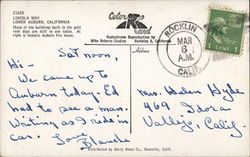 C11625
LINCOLN WAY
LOWER AUBURN, CALIFORNIA
Many of the buildings built in the gold
rush days are still in use today. At
right is historic Auburn fire house.
Kodachrome Reproduction by
Mike Roberts Studios Berkeley 2, California
Address
ROCKLIN
MAR
6
A.M.
CALIF.
Sat noon,
Hi -
We came up to
Auburn today - Ed
had to see a man
Writing as I ride in
car. Love
Blanche
Mrs. Helen Hyde
469 Idora
Vallejo, Calif.
Distributed by Berry News Co., Rocklin, Calif.